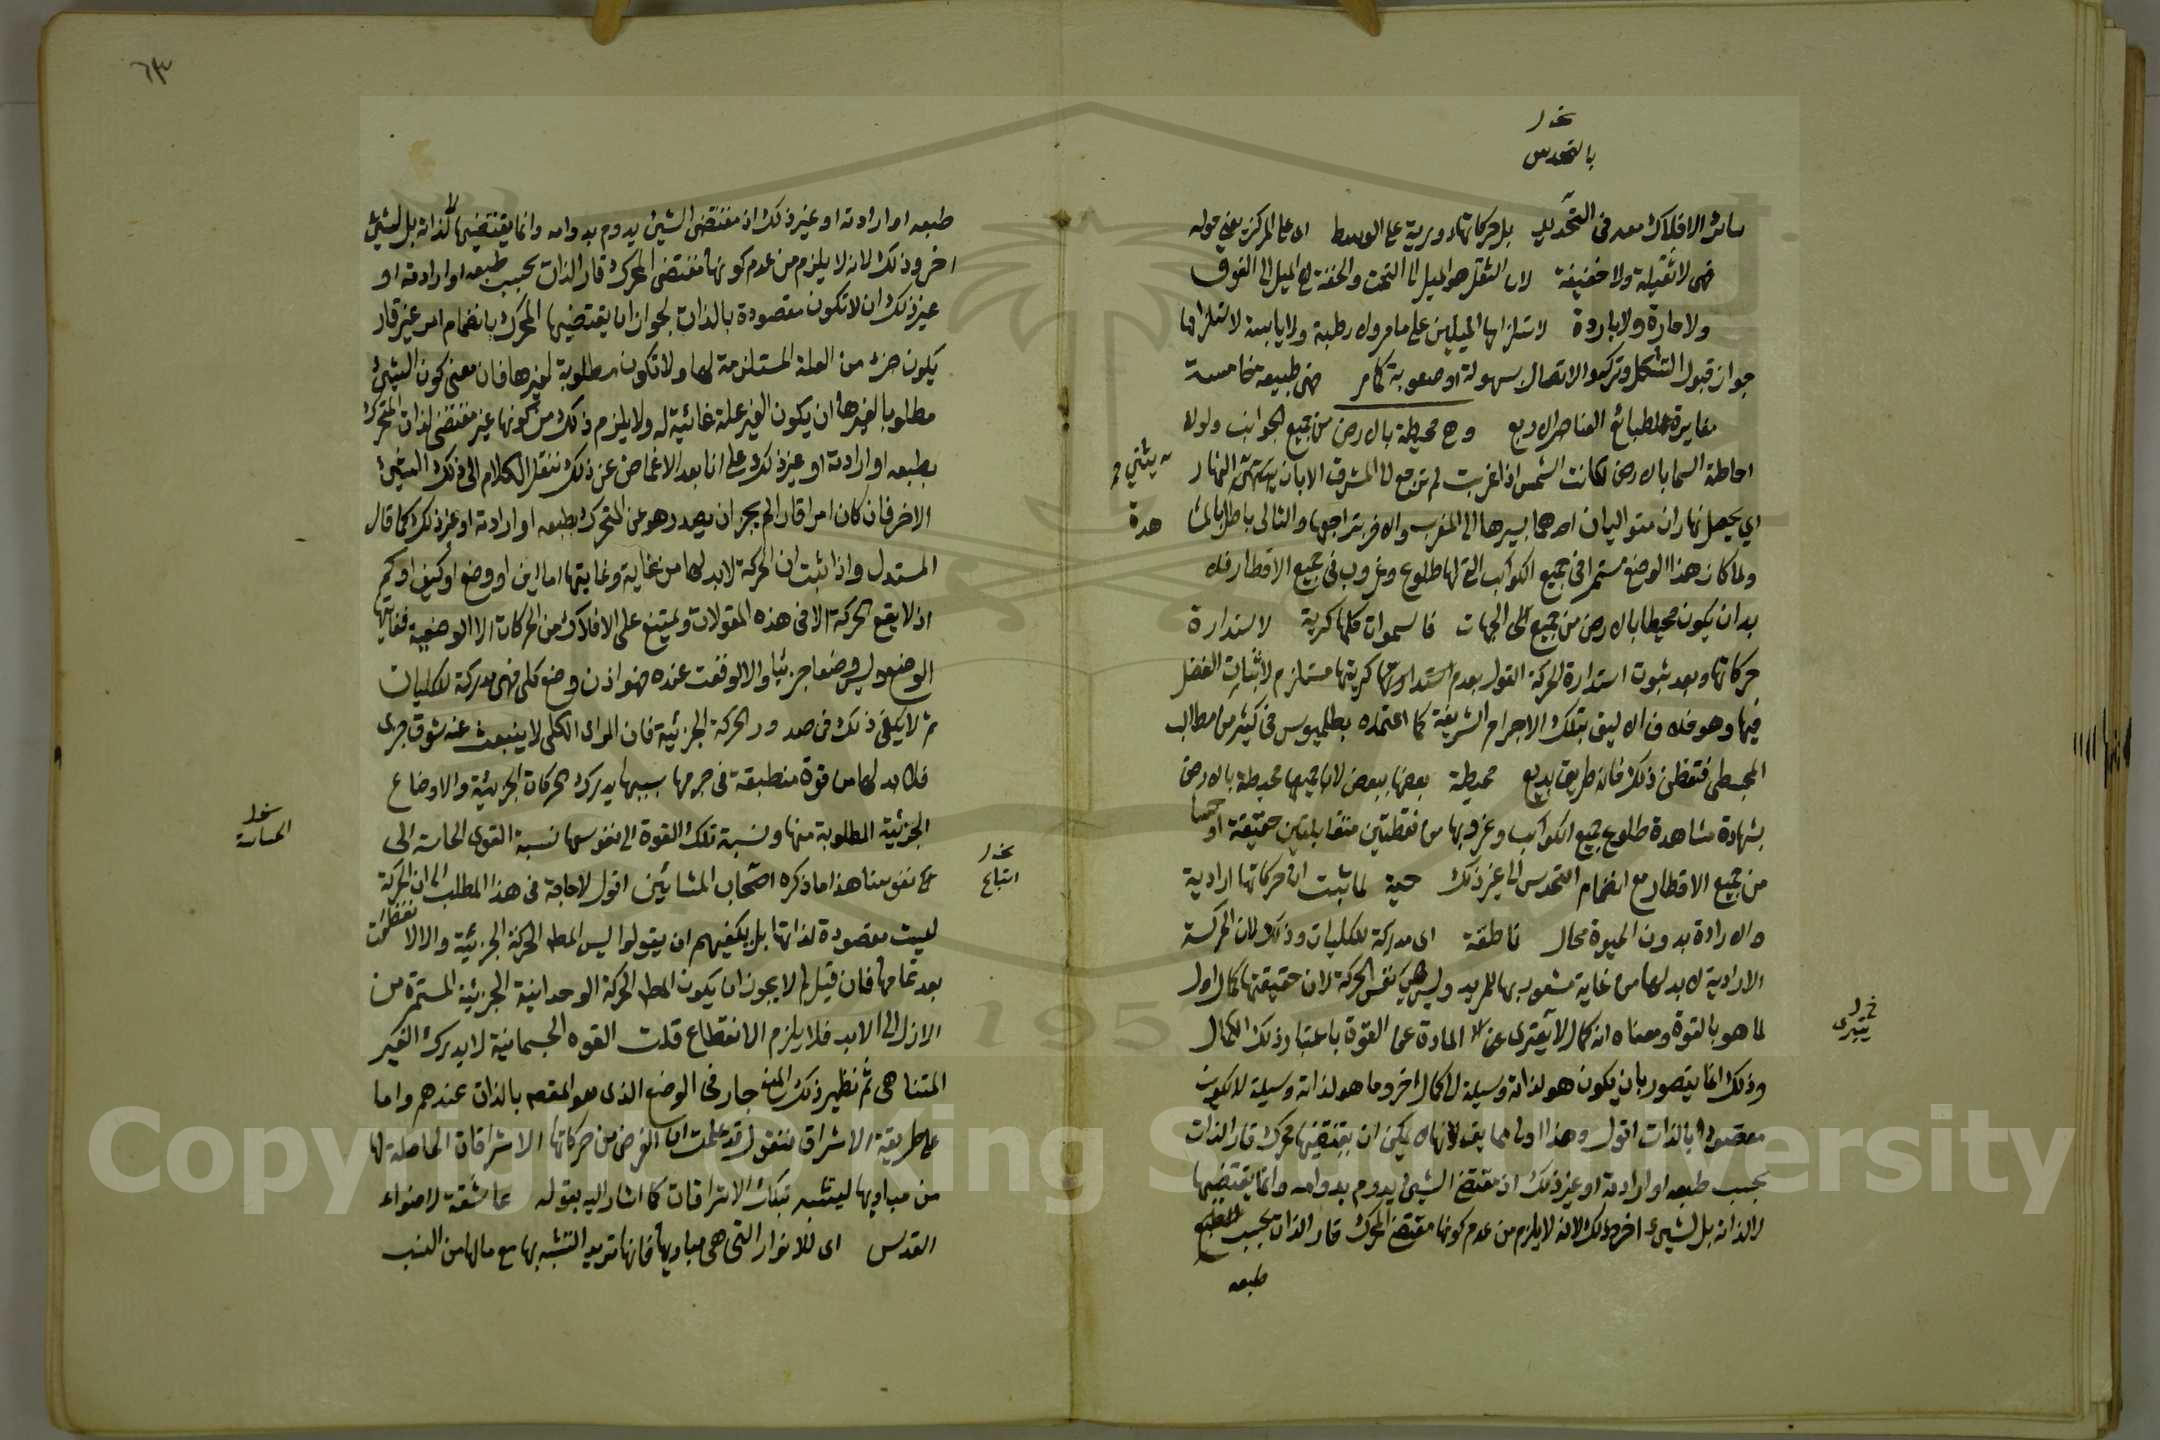 نخـ ل
بالتحدس
سائر الافلاك معه في التحديد بل حركاتها دورية على الوسط اى على المركز يعني حوله
فهي لا ثقيلة ولا خفيفة لان الثقل هو الميل الى التحت والخفة هي الميل الى الفوق
ولا حارة ولا باردة لاستلزامها الميلين على ما مر ولا رطبة ولا يابسة لاستلزامها
جواز قبول التشكل وتركه والاتصال بسهولة او صعوبة كما مر فهي طبيعة خامسة
مغايرة لطبائع العناصر الاربع وهي محيطة بالارض من جميع الجوانب ولولا
احاطة السما بالارض لكانت الشمس اذا غربت لم ترجع الى المشرق الا بان يتثنى النهار
اي يحصل نهاران متواليان احدهما بسيرها الى المغرب والاخر بتراجعها والتالي باطل بالمشا
هدة
ولما كان هذا الوضع مستمرا في جميع الكواكب التي لها طلوع وغروب في جميع الاقطار فلا
بد ان يكون محيطا بالارض من جميع الجهات فالسموات كلها كرية لاستدارة
حركاتها وبعد ثبوت استدارة الحركة القول بعدم استدارتها كريتها مستلزم لاثبات الفضل
فيها وهو خلاف الاليق بتلك الاجرام الشريفة كما اعتمده بطلميوس في كثير من مطالب
المجسطي فتفطن ذلك فانه طريق بديع محيطة بعضها ببعض لان جميعها محيطة بالارض
بشهادة مشاهدة طلوع جميع الكواكب وغروبها من نقطتين متقابلتين حقيقة او حسا
من جميع الاقطار مع انضمام التحدس الى غير ذلك حية لما ثبت ان حركاتها ارادية
والارادة بدون الحيوة محال ناطقة اى مدركة للكليات وذلك لان الحركة
الارادية لا بد لها من غاية مشعور بها للمريد وليس هي نفس الحركة لان حقيقتها كمال اول
لما هو بالقوة ومعناه انه كمال لا يعترى عن المادة عن القوة باعتبار ذلك الكمال
نخـ ل
يتبرى
وذلك انما يتصور بان يكون هو لذاته وسيلة الى كمال اخر وما هو لذاته وسيلة لا يكون
مقصودا بالذات اقول وهذا اولى مما يقال لانها لا يمكن ان يقتضيها محرك قار الذات
بحسب طبعه او ارادته او غير ذلك اذ مقتضى الشيئ يدوم بدوامه وانما يقتضيها
لا لذاته بل لشيئ اخر وذلك لانه لا يلزم من عدم كونها مقتضى المحرك قار الذات بحسب
طبعه
٦٣
طبعه او ارادته او غير ذلك اذ مقتضى الشيئ يدوم بدوامه وانما يقتضيها لا لذاته بل لشيئ
اخر وذلك لانه لا يلزم من عدم كونها مقتضى المحرك قار الذات بحسب طبعه او ارادته او
غير ذلك ان لا تكون مقصودة بالذات لجواز ان يقتضيها المحرك بانضمام امر غير قار
يكون جزء من العلة المستلزمة لها ولا تكون مطلوبة لغيرها فان معنى كون الشيئ
مطلوبا لغيره ان يكون الغير علة غائية له ولا يلزم ذلك من كونها غير مقتضى لذات المتحرك
بطبعه او ارادته او غير ذلك على انا بعد الاغماض عن ذلك ننقل الكلام الى ذلك الشيئ
الاخر فان كان امرا قارا لم يجز ان يصدر هو من المتحرك بطبعه او ارادته او غير ذلك كما قال
المستدل واذا ثبت ان الحركة لا بد لها من غاية وغايتها اما اين او وضع او كيف او كم
اذ لا يقع الحركة الا في هذه المقولات ويمتنع على الافلاك من الحركات الا الوضعية فغايتها
الوضع وليس وضعا جزئيا والا لوقفت عنده فهو اذن وضع كلي فهي مدركة للكليات
ثم لا يكفي ذلك في صدور الحركة الجزئية فان الراى الكلي لا ينبعث عنه شوق جزى
فلا بد لها من قوة منطبقة في جرمها بسببها يدرك الحركات الجزئية والاوضاع
الجزئية المطلوبة منها ونسبة تلك القوة الى نفوسها نسبة القوى الحاسة الى
نخـ ل
الحساسة
نفوسنا هذا ما ذكره اصحاب المشائين اقول لا حاجة في هذا المطلب الى ان الحركة
نخـ ل
اتباع
ليست مقصودة لذاتها بل يكفيهم ان يقولوا ليس المط الحركة الجزئية والا لانقطعت
بعد تمامها فان قيل لم لا يجوز ان يكون المط الحركة الوحدانية الجزئية المستمرة من
الازل الى الابد فلا يلزم الانقطاع قلت القوه الجسمانية لا يدرك الغير
المتناهي ثم نظير ذلك المنع جار في الوضع الذى هو المقصد بالذات عندهم واما
على طريقة الاشراق فنقول قد علمت ان الغرض من حركاتها الاشراقات الحاصلة لها
من مباديها ليتشبه بتلك الاشراقات كما اشار اليه بقوله عاشقة لاضواء
القدس اى للانوار التي هي مباديها فانها تريد التشبه بها مع مالها من النسب